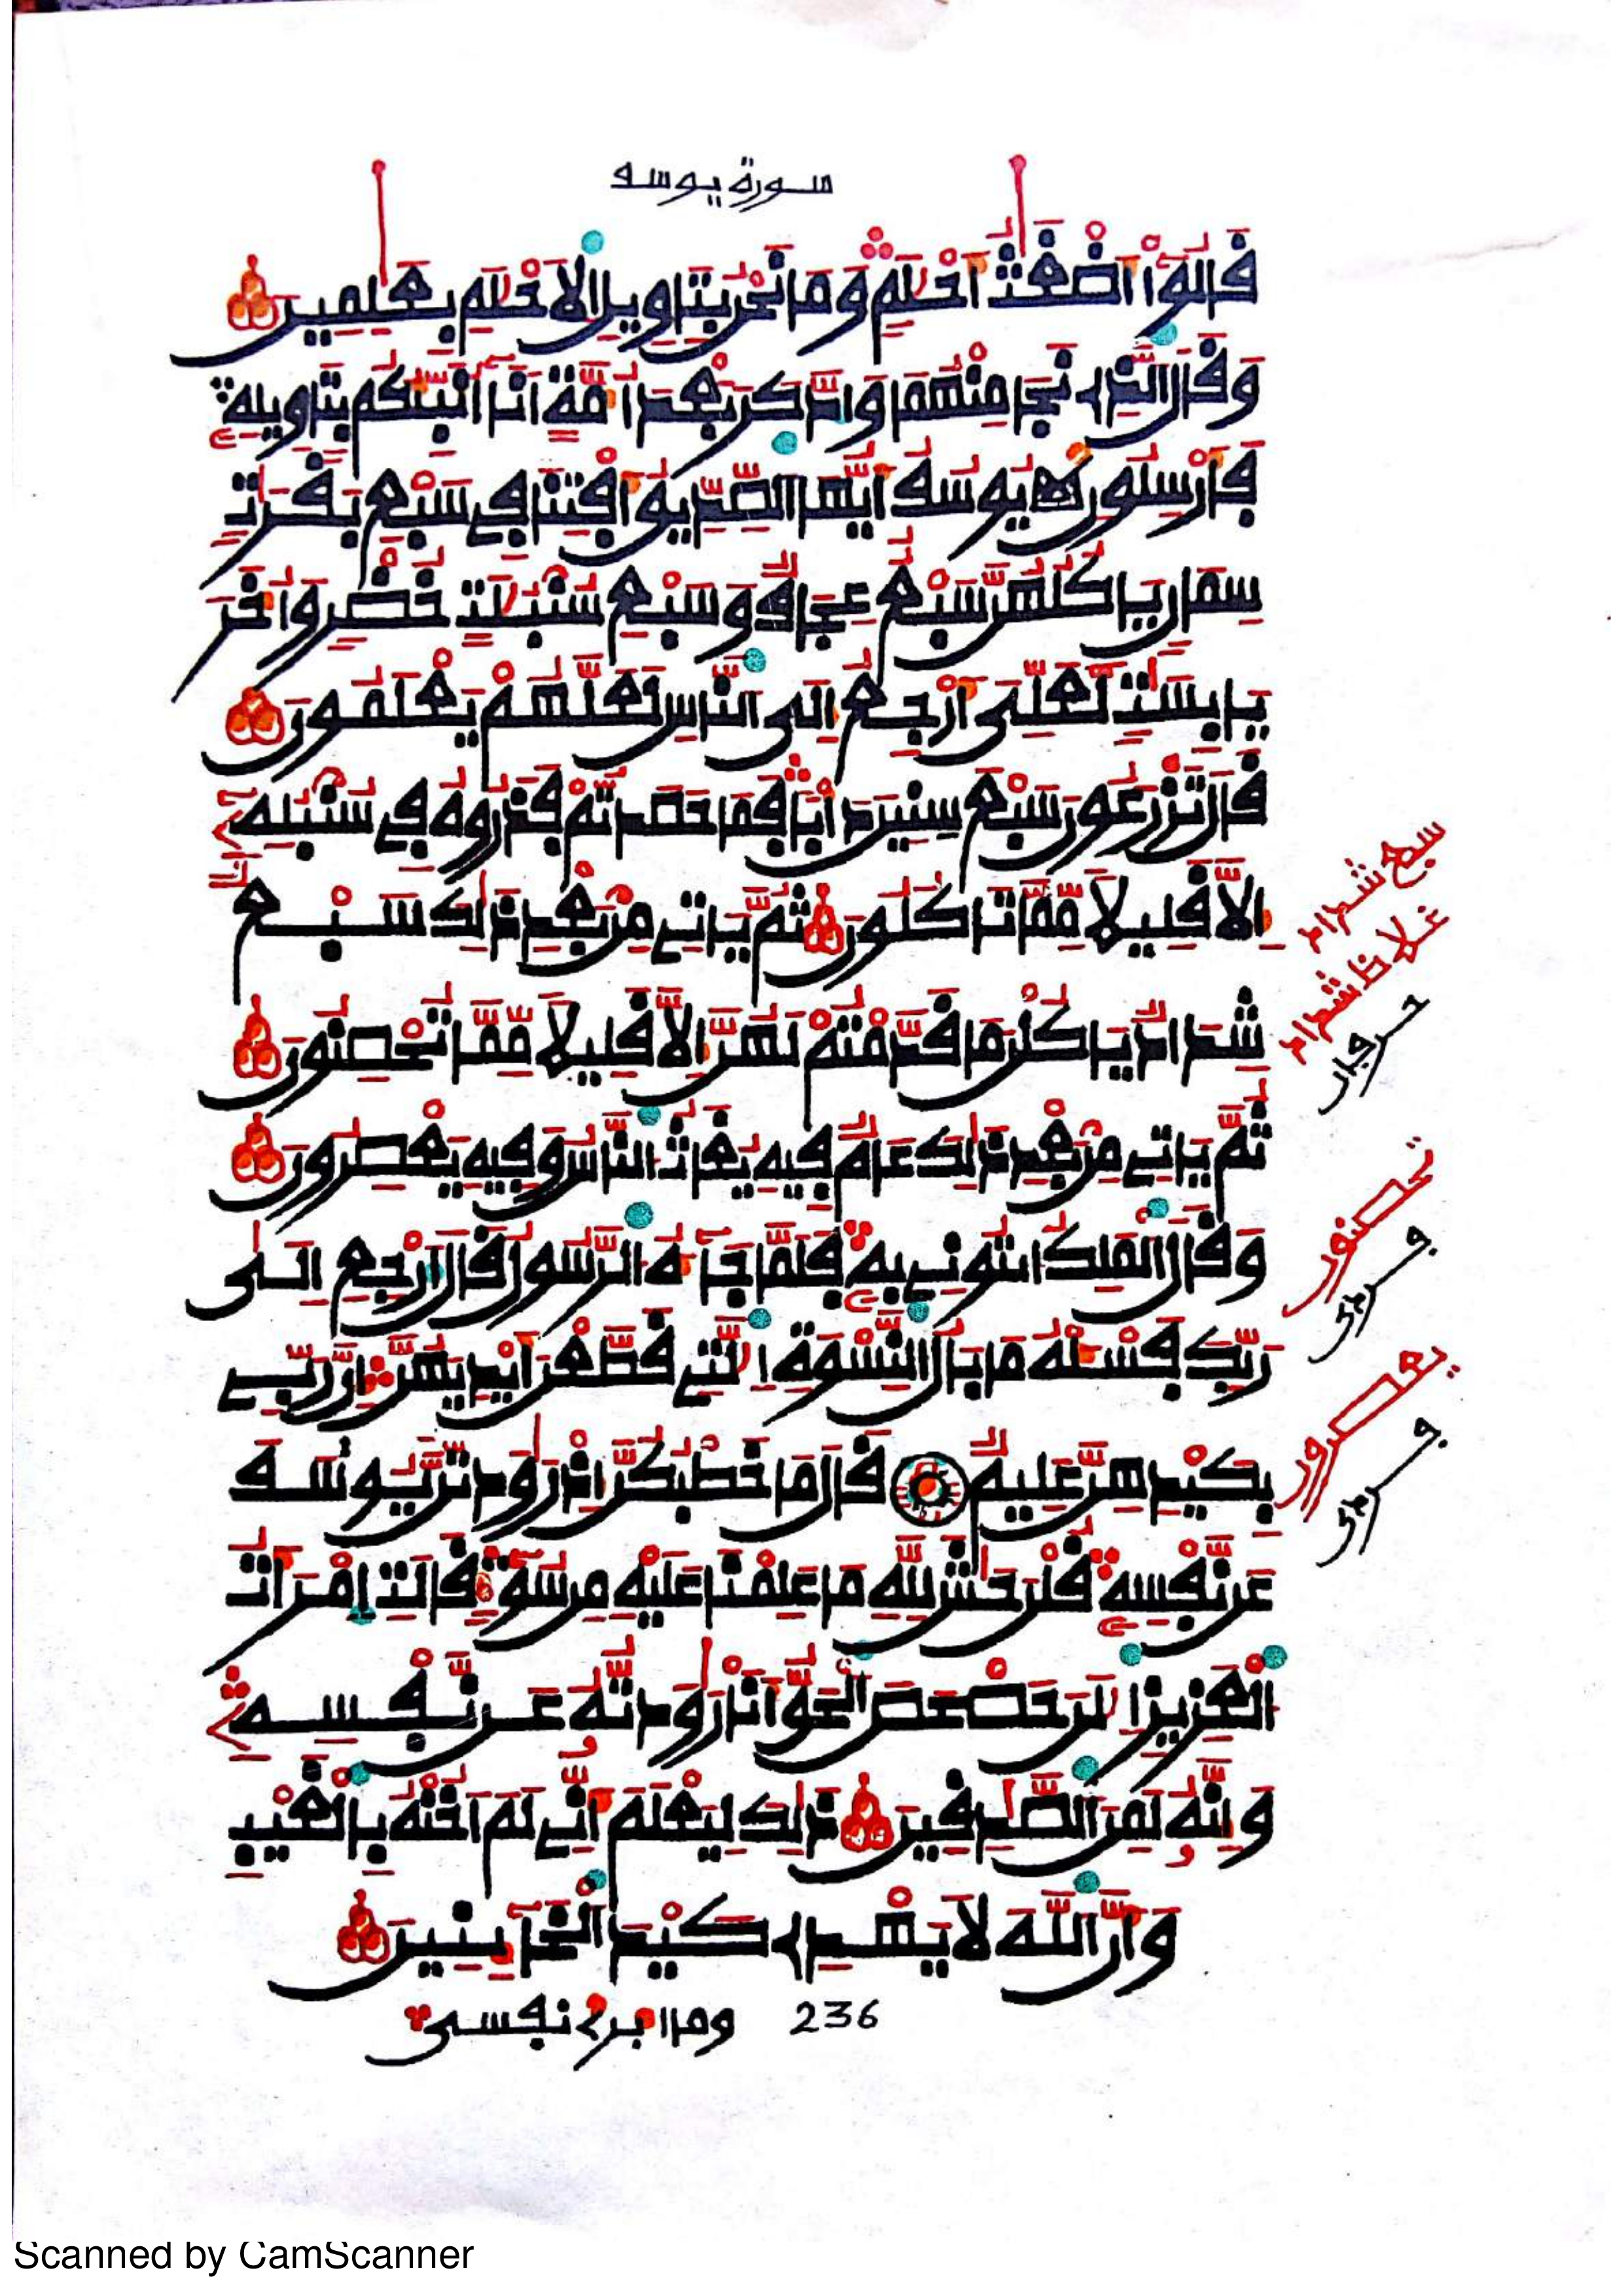 سورة يوسف
قَالُوٓا أَضْغَٰثُ أَحْلَٰمٖ وَمَا نَحْنُ بِتَاوِيلِ الَاحْلَٰمِ بِعَٰلِمِينَ
وَقَالَ الذِے نَجَا مِنْهُمَا وَادَّكَرَ بَعْدَ أُمَّةٍ اَنَآ أُنَبِّئُكُم بِتَاوِيلِهِۦ
فَأَرْسِلُونِ يُوسُفُ أَيُّهَا الصِّدِّيقُ أَفْتِنَا فِے سَبْعِ بَقَرَٰتٖ
سِمَانٖ يَاكُلُهُنَّ سَبْعٌ عِجَافٞ وَسَبْعِ سُنۢبُلَٰتٍ خُضْرٖ وَأُخَرَ
يَابِسَٰتٖ لَّعَلِّىٓ أَرْجِعُ إِلَى النَّاسِ لَعَلَّهُمْ يَعْلَمُونَ
قَالَ تَزْرَعُونَ سَبْعَ سِنِينَ دَأْباٗ فَمَا حَصَدتُّمْ فَذَرُوهُ فِے سُنۢبُلِهِۦٓ
إِلَّا قَلِيلاٗ مِّمَّا تَاكُلُونَ ثُمَّ يَاتِے مِنۢ بَعْدِ ذَٰلِكَ سَبْعٞ
شِدَادٞ يَاكُلْنَ مَا قَدَّمْتُمْ لَهُنَّ إِلَّا قَلِيلاٗ مِّمَّا تُحْصِنُونَ
ثُمَّ يَاتِے مِنۢ بَعْدِ ذَٰلِكَ عَامٞ فِيهِ يُغَاثُ النَّاسُ وَفِيهِ يَعْصِرُونَ
وَقَالَ الْمَلِكُ ائْتُونِے بِهِۦ فَلَمَّا جَآءَهُ الرَّسُولُ قَالَ اَرْجِعِ اِلَىٰ
رَبِّكَ فَسْـَٔلْهُ مَا بَالُ النِّسْوَةِ الَّٰتِے قَطَّعْنَ أَيْدِيَهُنَّ إِنَّ رَبِّے
بِكَيْدِهِنَّ عَلِيمٞ قَالَ مَا خَطْبُكُنَّ إِذْ رَٰوَدتُّنَّ يُوسُفَ
عَن نَّفْسِهِۦ قُلْنَ حَٰشَ لِلهِ مَا عَلِمْنَا عَلَيْهِ مِن سُوٓءٖ قَالَتِ اِمْرَأَتُ
الْعَزِيزِ الَٰنَ حَصْحَصَ الْحَقُّ أَنَا رَٰوَدتُّهُۥ عَن نَّفْسِهِۦ
وَإِنَّهُۥ لَمِنَ الصَّٰدِقِينَ ذَٰلِكَ لِيَعْلَمَ أَنِّے لَمَ اَخُنْهُ بِالْغَيْبِ
وَأَنَّ اللَّهَ لَا يَهْدِے كَيْدَ الْخَآئِنِينَ
وما ابرئ نفسى
236
سبع شداد
تحصنون
يعصرون
Scanned by CamScanner